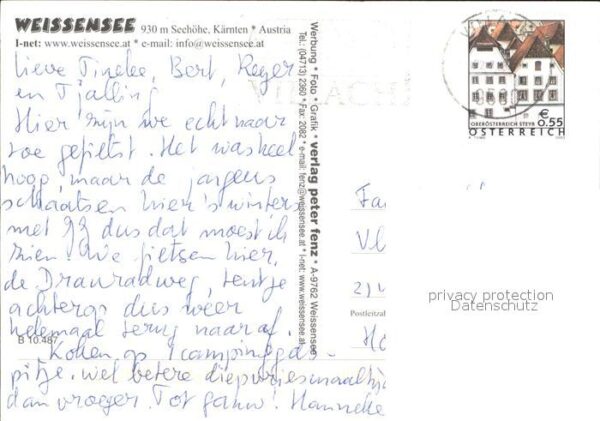 WEISSENSEE 930 m Seehöhe, Kärnten * Austria
I-net: www.weissensee.at * e-mail: info@weissensee.at
Lieve Tineke, Bert, Roger
en Tjalling
Hier zijn we echt naar
toe gefietst. Het was heel
hoog, maar de jongens
schaatsen hier 's winters
met JJ dus dat moest ik
zien. We fietsen hier,
de Drauradweg, tentje
achterop dus weer
helemaal terug naar af.
Koken op 1 campinggas-
pitje. wel betere diepvriesmaaltijd
dan vroeger. Tot gauw! Hanneke
B 10.487
Werbung * Foto * Grafik * verlag peter fenz * A-9762 Weissensee
Tel.: (04713) 2360 * Fax: 2082 * e-mail: fenz@weissensee.at * I-net: www.weissensee.at
VILLACH
€ 0,55
OBERÖSTERREICH STEYR
ÖSTERREICH
Fa
Vl
Postleitzahl
Ho
privacy protection
Datenschutz